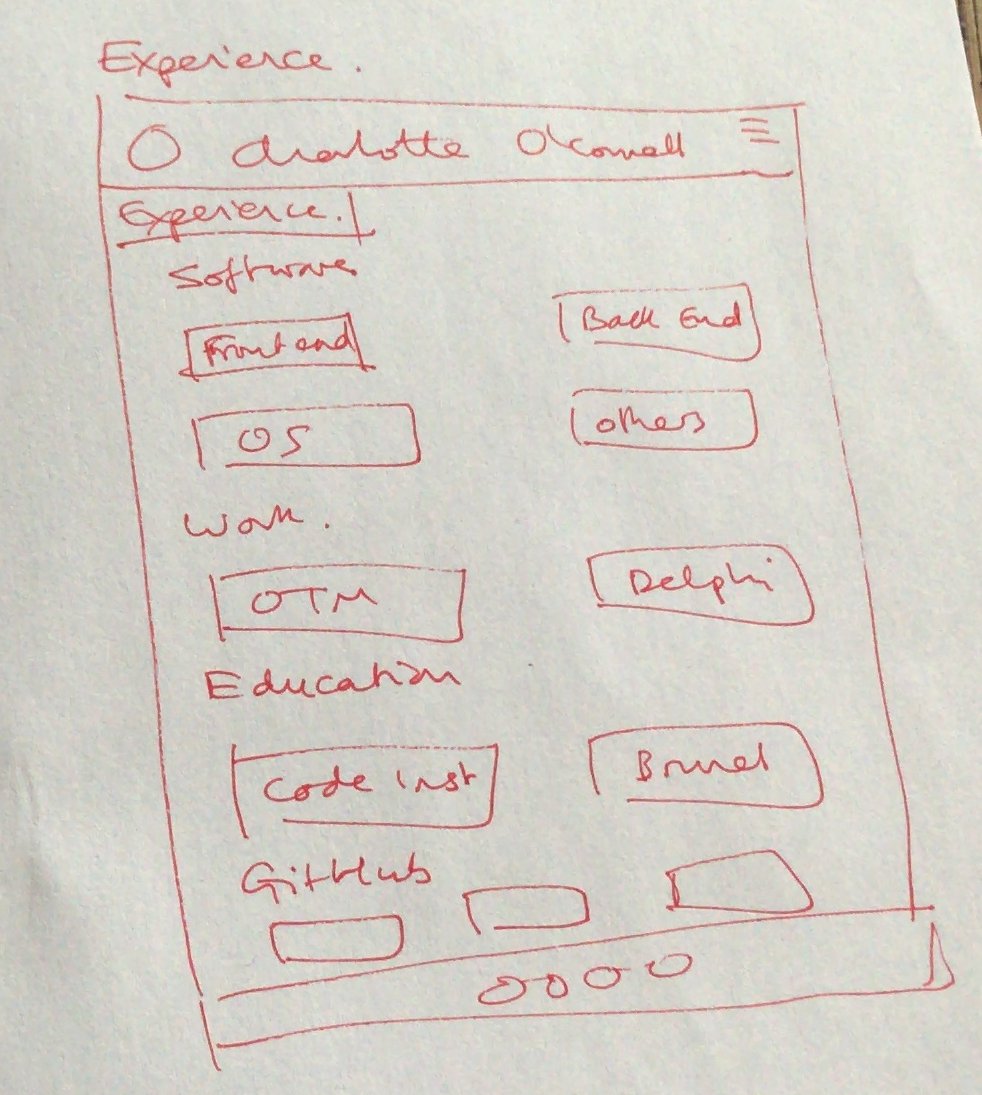 Experience.
Charlotte O'Connell
Experience.
Software
Front end Back End
OS Others
Work.
OTM Delphi
Education
Code Inst Brunel
GitHub